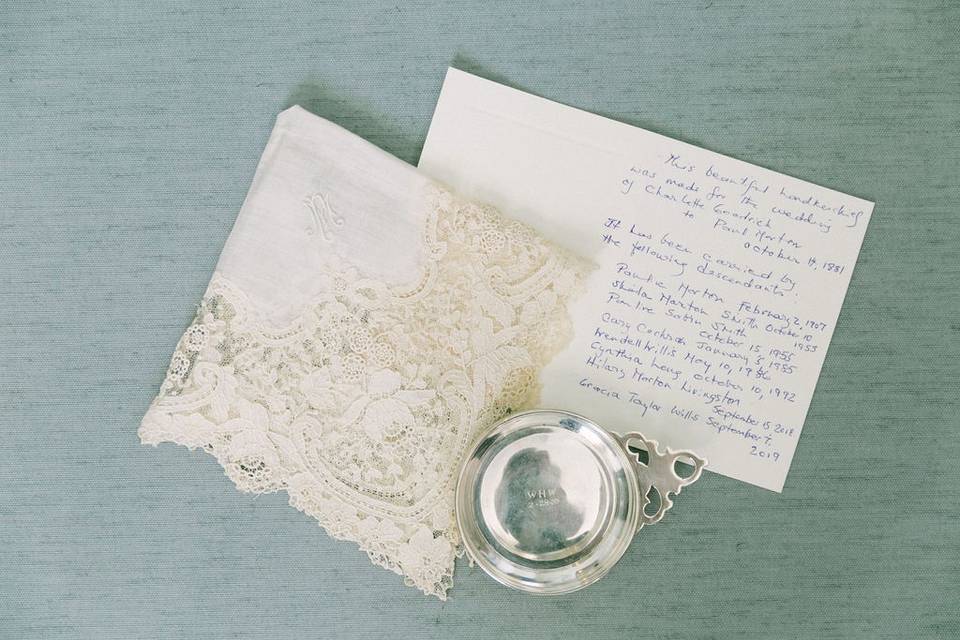 M
This beautiful handkerchief
was made for the wedding
of Charlotte Goodrich
to Paul Morton
October 14, 1881
It has been carried by
the following descendants.
Pauline Morton February 2, 1907
Morton Smith October 10
1953
Pauline Sabin Smith
October 15, 1955
Gary Cochran January 5, 1985
Wendell Willis May 10, 1986
Cynthia October 10, 1992
Hilary Morton Livingston
September 15, 2018
Gracia Taylor Willis September 7,
2019
WHW